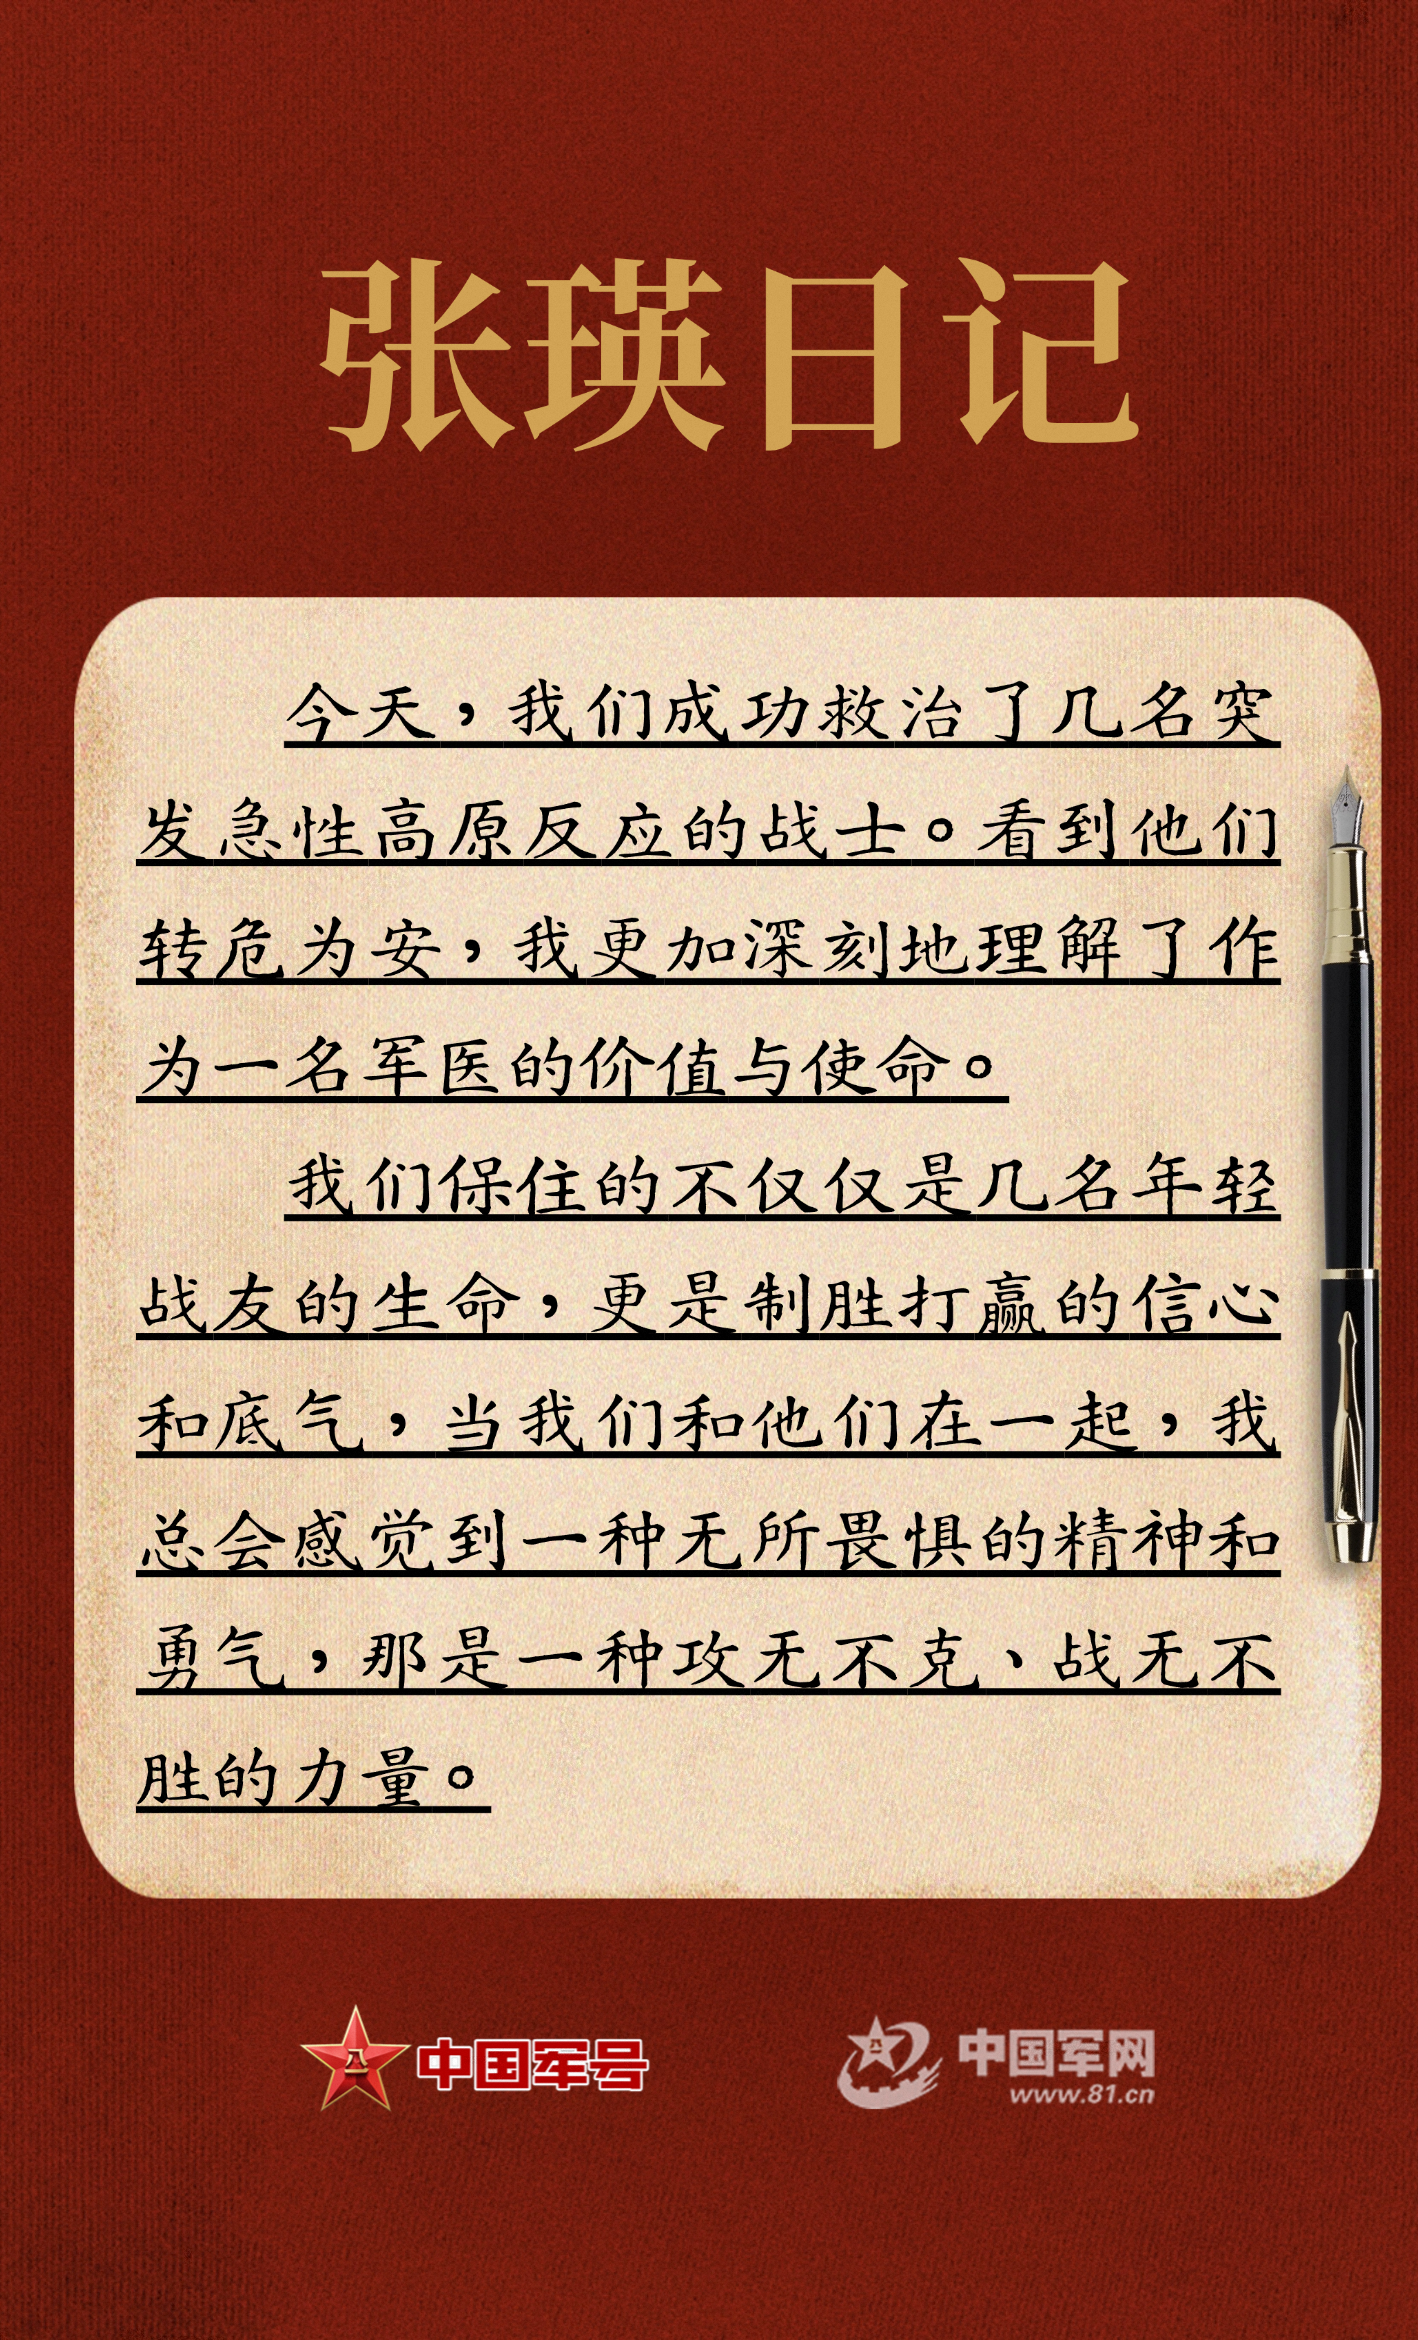 张瑛日记
今天，我们成功救治了几名突
发急性高原反应的战士。看到他们
转危为安，我更加深刻地理解了作
为一名军医的价值与使命。
我们保住的不仅仅是几名年轻
战友的生命，更是制胜打赢的信心
和底气，当我们和他们在一起，我
总会感觉到一种无所畏惧的精神和
勇气，那是一种攻无不克、战无不
胜的力量。
八一
中国军号
八一
中国军网
www.81.cn